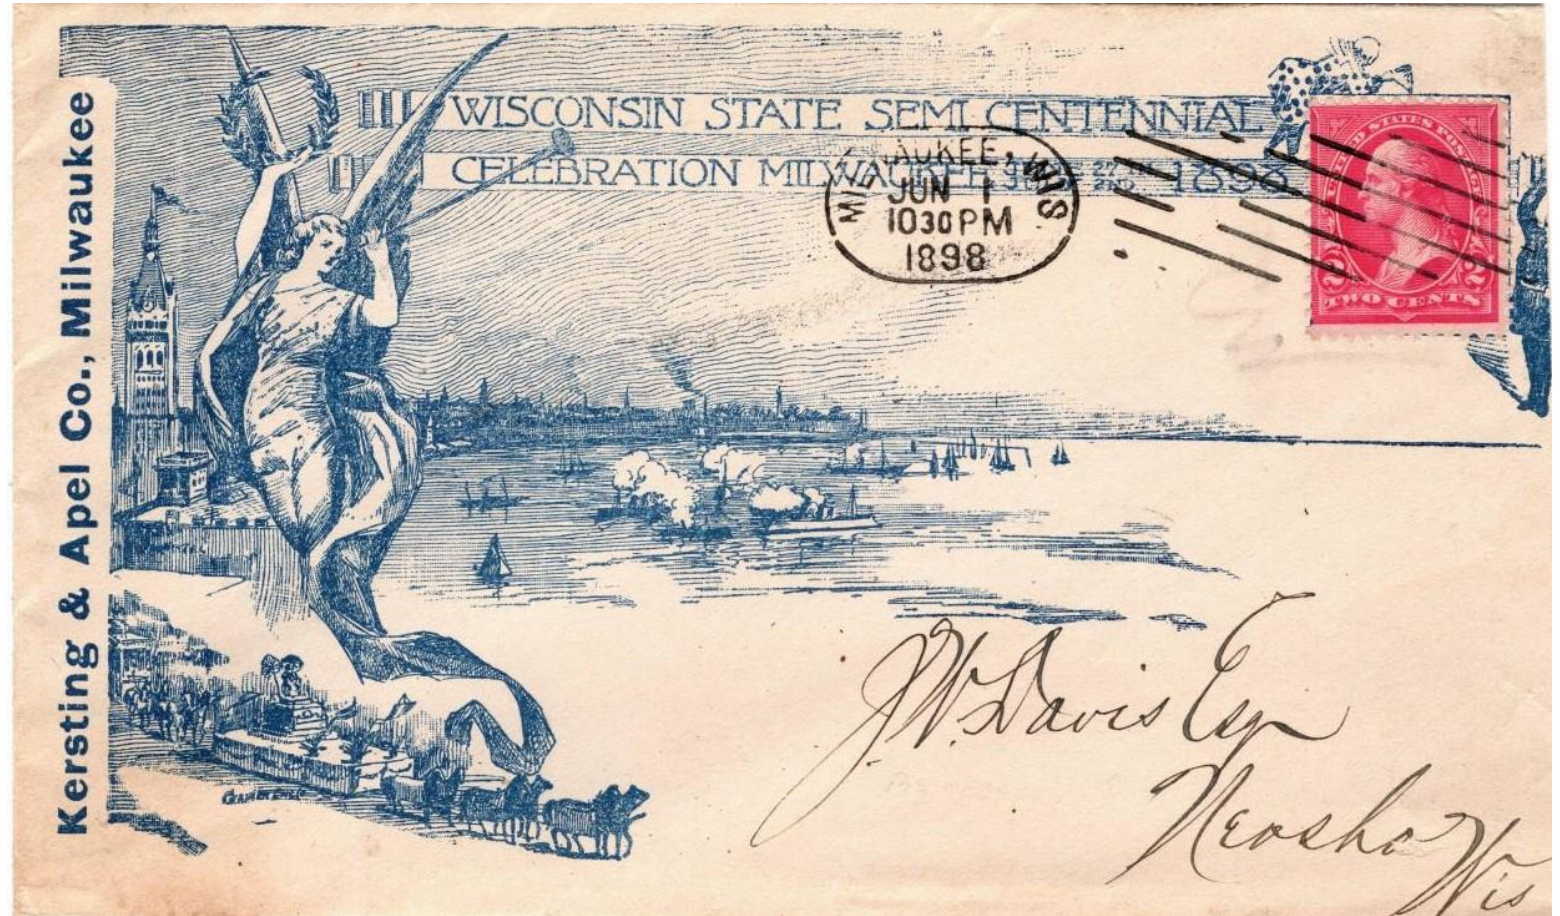 Kersting & Apel Co., Milwaukee
WISCONSIN STATE SEMI CENTENNIAL
CELEBRATION MILWAUKEE 1898
MILWAUKEE, WIS
JUN 1
10 30 PM
1898
UNITED STATES POSTAGE
2 2
TWO CENTS
J. W. Davis Esq
Neosho
Wis